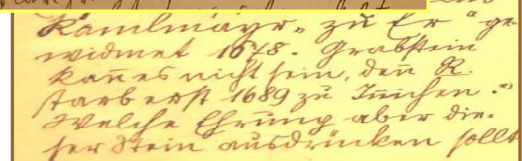 Kamlmayr „ zu Er “ ge
widmet 1678. Grabstein
kan̄ es nicht sein, den̄ R.
starb erst 1689 zu Innichen."
Welche Ehrung aber die-
ser Stein ausdrücken sollt